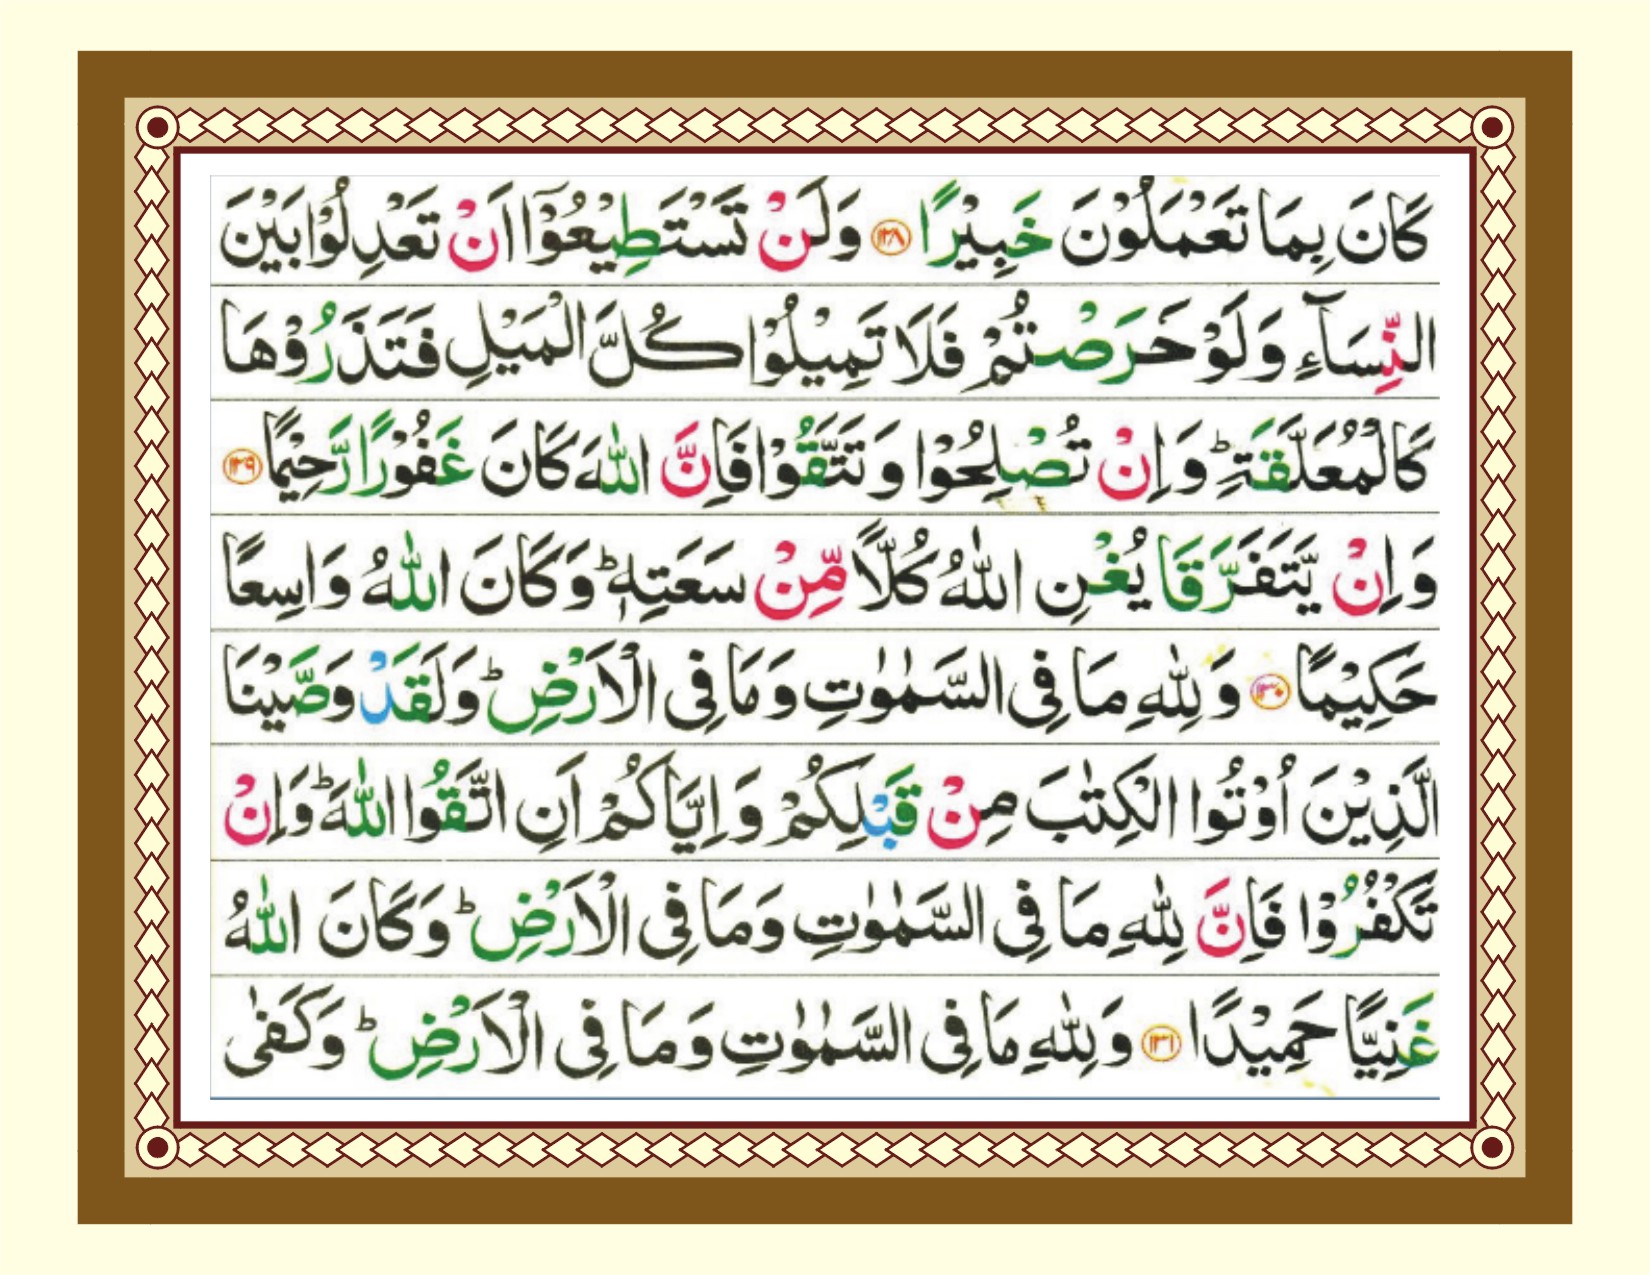 كَانَ بِمَا تَعْمَلُوْنَ خَبِيْرًا ﴿۱۲۸﴾ وَلَنْ تَسْتَطِيْعُوْۤا اَنْ تَعْدِلُوْا بَيْنَ
النِّسَآءِ وَلَوْ حَرَصْتُمْ فَلَا تَمِيْلُوْا كُلَّ الْمَيْلِ فَتَذَرُوْهَا
كَالْمُعَلَّقَةِ ؕ وَاِنْ تُصْلِحُوْا وَتَتَّقُوْا فَاِنَّ اللّٰهَ كَانَ غَفُوْرًا رَّحِيْمًا ﴿۱۲۹﴾
وَاِنْ يَّتَفَرَّقَا يُغْنِ اللّٰهُ كُلًّا مِّنْ سَعَتِهٖ ؕ وَكَانَ اللّٰهُ وَاسِعًا
حَكِيْمًا ﴿۱۳۰﴾ وَلِلّٰهِ مَا فِى السَّمٰوٰتِ وَمَا فِى الْاَرْضِ ؕ وَلَقَدْ وَصَّيْنَا
الَّذِيْنَ اُوْتُوا الْكِتٰبَ مِنْ قَبْلِكُمْ وَاِيَّاكُمْ اَنِ اتَّقُوا اللّٰهَ ؕ وَاِنْ
تَكْفُرُوْا فَاِنَّ لِلّٰهِ مَا فِى السَّمٰوٰتِ وَمَا فِى الْاَرْضِ ؕ وَكَانَ اللّٰهُ
غَنِيًّا حَمِيْدًا ﴿۱۳۱﴾ وَلِلّٰهِ مَا فِى السَّمٰوٰتِ وَمَا فِى الْاَرْضِ ؕ وَكَفٰى